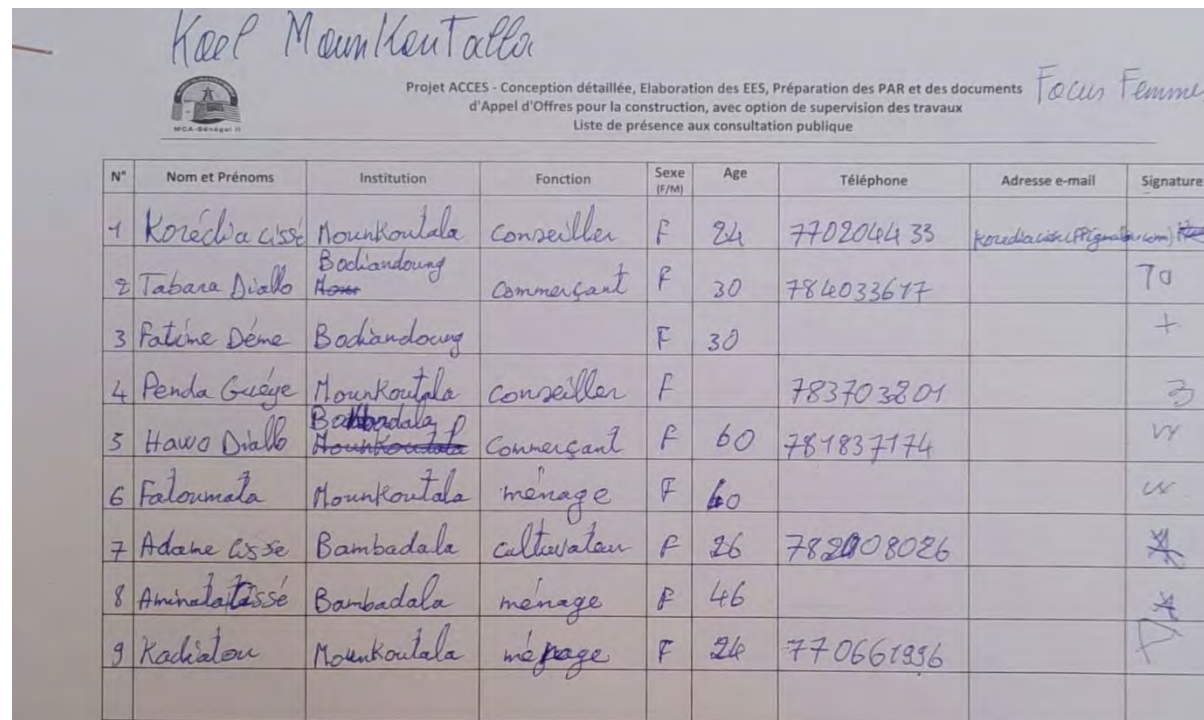 Kael Mounkoutalla
MCA-Sénégal II
Projet ACCES - Conception détaillée, Elaboration des EES, Préparation des PAR et des documents
d'Appel d'Offres pour la construction, avec option de supervision des travaux
Liste de présence aux consultation publique
Focus Femme
N° Nom et Prénoms Institution Fonction Sexe (F/M) Age Téléphone Adresse e-mail Signature
1 Korédia cissé Mounkoutala conseiller F 24 770204433
2 Tabara Diallo Bodiandoung commerçant F 30 784033617 Ta
3 Fatime Déme Bodiandoung F 30 +
4 Penda Guéye Mounkoutala conseiller F 783703201
5 Hawo Diallo Bambadala Commerçant F 60 781837174
6 Fatoumata Mounkoutala ménage F 60
7 Adame cisse Bambadala cultivateur F 26
8 Aminata cissé Bambadala ménage F 46
9 Kadiatou Mounkoutala ménage F 24 770661996